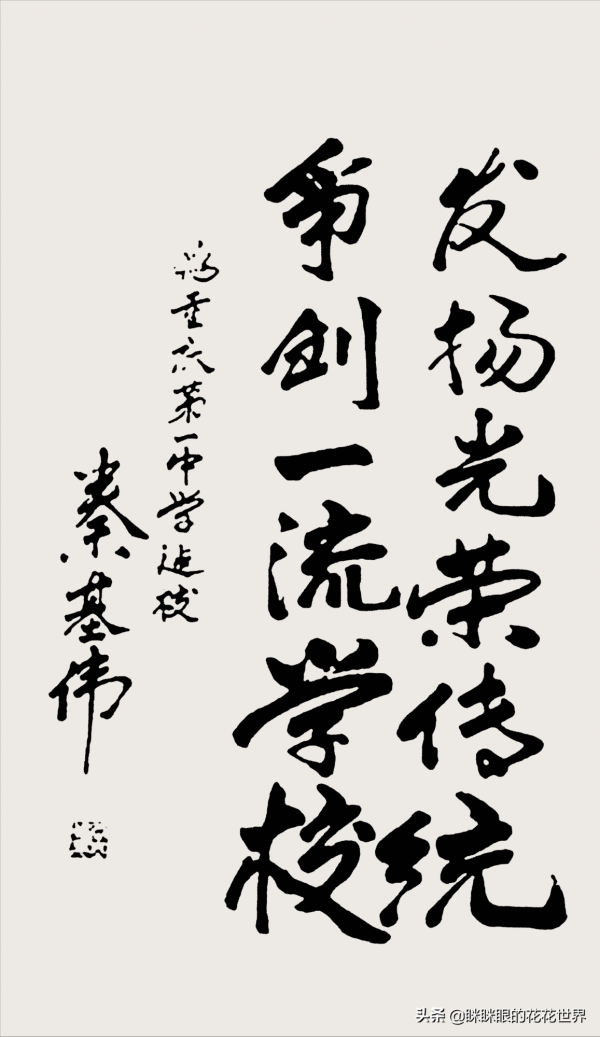 发扬光荣传统
争创一流学校
為重庆第一中学建校
秦基伟
头条 @眯眯眼的花花世界